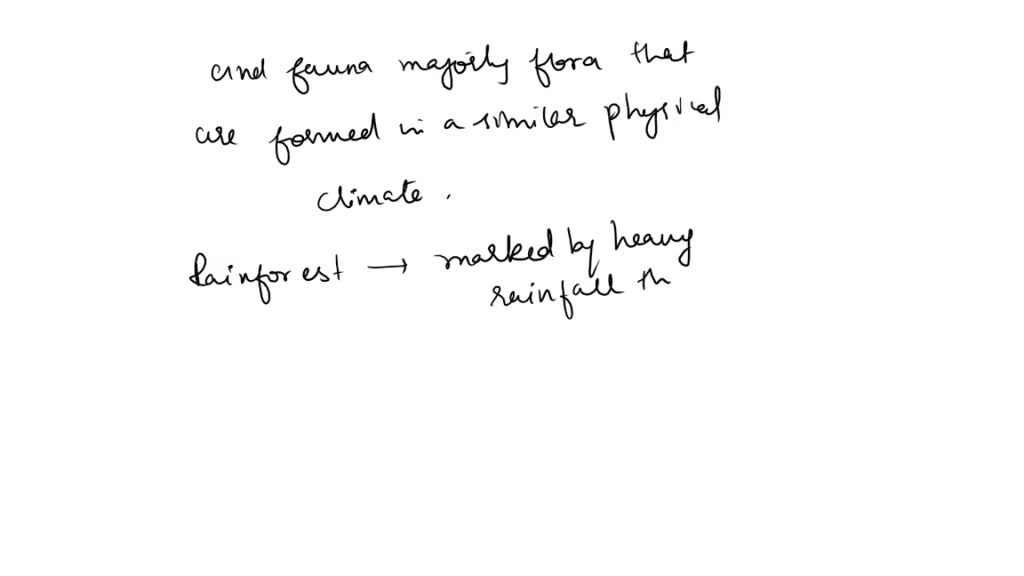 and fauna majorly flora that
are formed in a similar physical
climate.
Rainforest → marked by heavy
rainfall th